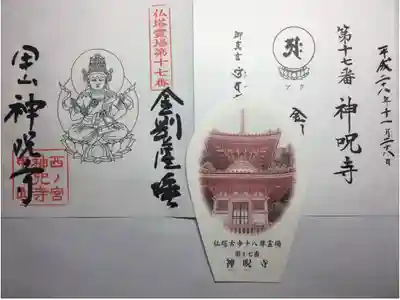 平成二八年十一月二八日
第十七番 神呪寺
御真言
仏塔霊場第十七番
金剛薩埵
甲山 神呪寺
西ノ宮
神呪寺
仏塔古寺十八尊霊場
第十七番
神呪寺